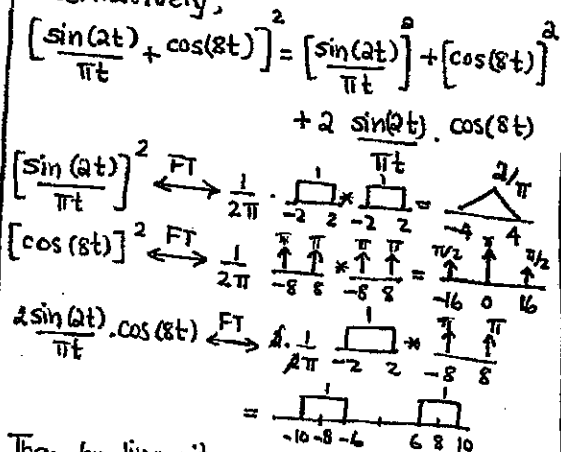 [sin(2t)/πt + cos(8t)]² = [sin(2t)/πt]² + [cos(8t)]²
+ 2 sin(2t)/πt . cos(8t)
[sin(2t)/πt]² FT ↔ 1/2π . 1 -2 2 * 1 -2 2 = 2/π -4 4
[cos(8t)]² FT ↔ 1/2π π π -8 8 * π π -8 8 = π/2 π π/2 -16 0 16
2sin(2t)/πt . cos(8t) FT ↔ 2 . 1/2π 1 -2 2 * π π -8 8
= 1 1 -10 -8 -6 6 8 10